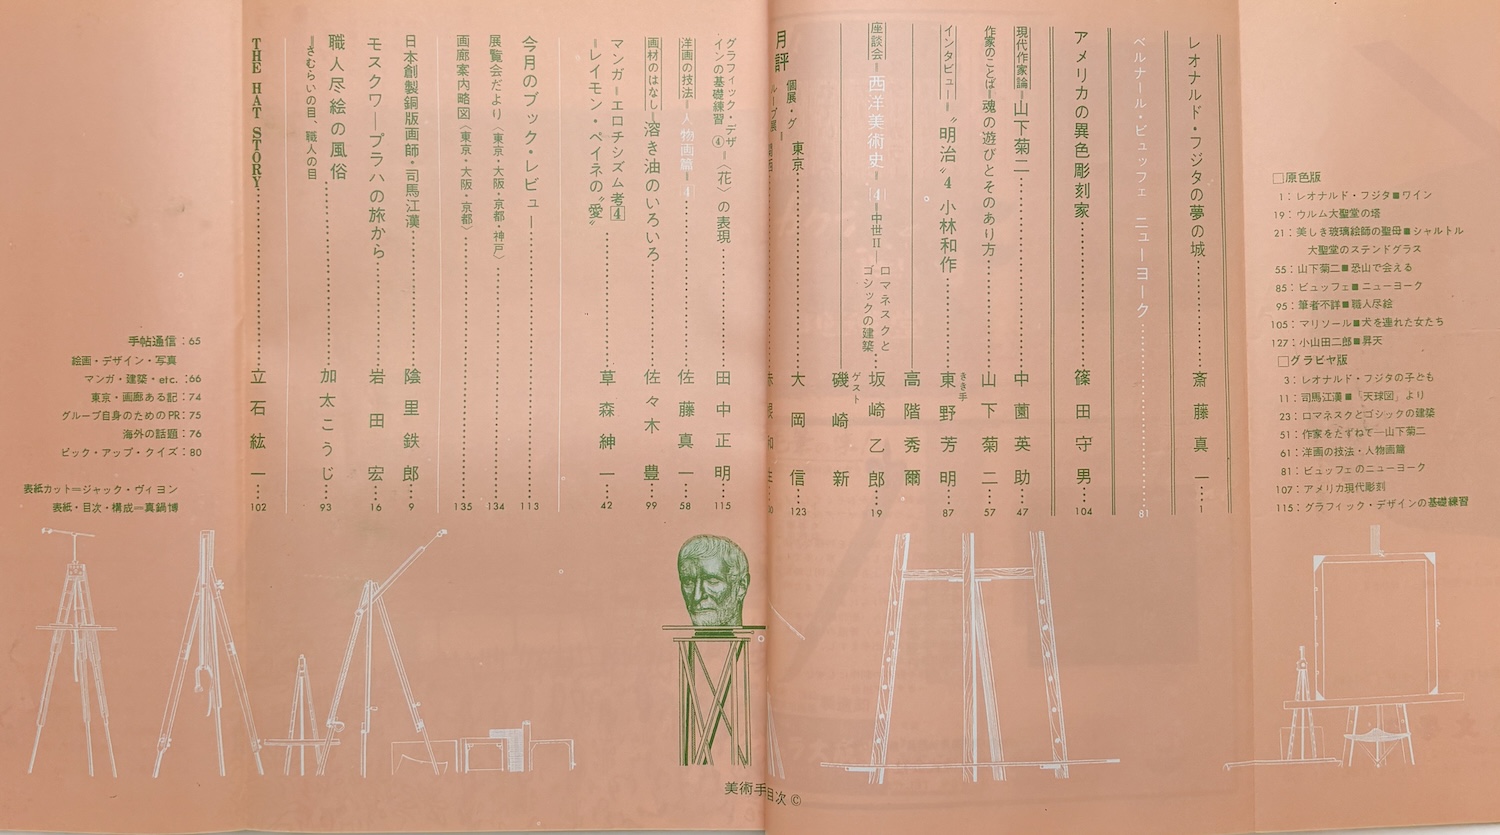 レオナルド・フジタの夢の城 斎藤真一 1
ベルナール・ビュッフェ ニューヨーク 81
アメリカの異色彫刻家 篠田守男 104
現代作家論=山下菊二 中薗英助 47
作家のことば=魂の遊びとそのあり方 山下菊二 57
インタビュー="明治"4 小林和作 きき手 東野芳明 87
座談会=西洋美術史=4=中世Ⅱ―ロマネスクとゴシックの建築
高階秀爾
坂崎乙郎 19
ゲスト 磯崎新
月評
個展・グループ展
東京 大岡信 123
グラフィック・デザインの基礎練習④=〈花〉の表現 田中正明 115
洋画の技法=人物画篇=4 佐藤真一 58
画材のはなし=溶き油のいろいろ 佐々木豊 99
マンガ=エロチシズム考4
=レイモン・ペイネの"愛" 草森紳一 42
今月のブック・レビュー 113
展覧会だより〈東京・大阪・京都・神戸〉 134
画廊案内略図〈東京・大阪・京都〉 135
日本創製銅版画師・司馬江漢 陰里鉄郎 9
モスクワ―プラハの旅から 岩田宏 16
職人尽絵の風俗
=さむらいの目、職人の目 加太こうじ 93
THE HAT STORY 立石紘一 102
□原色版
1:レオナルド・フジタ■ワイン
19:ウルム大聖堂の塔
21:美しき玻璃絵師の聖母■シャルトル
大聖堂のステンドグラス
55:山下菊二■恐山で会える
85:ビュッフェ■ニューヨーク
95:筆者不詳■職人尽絵
105:マリソール■犬を連れた女たち
127:小山田二郎■昇天
□グラビヤ版
3:レオナルド・フジタの子ども
11:司馬江漢■「天球図」より
23:ロマネスクとゴシックの建築
51:作家をたずねて―山下菊二
61:洋画の技法・人物画篇
81:ビュッフェのニューヨーク
107:アメリカ現代彫刻
115:グラフィック・デザインの基礎練習
手帖通信:65
絵画・デザイン・写真
マンガ・建築・etc.:66
東京・画廊ある記:74
グループ自身のためのPR:75
海外の話題:76
ピック・アップ・クイズ:80
表紙カット=ジャック・ヴィヨン
表紙・目次・構成=真鍋博
美術手 目次 ©